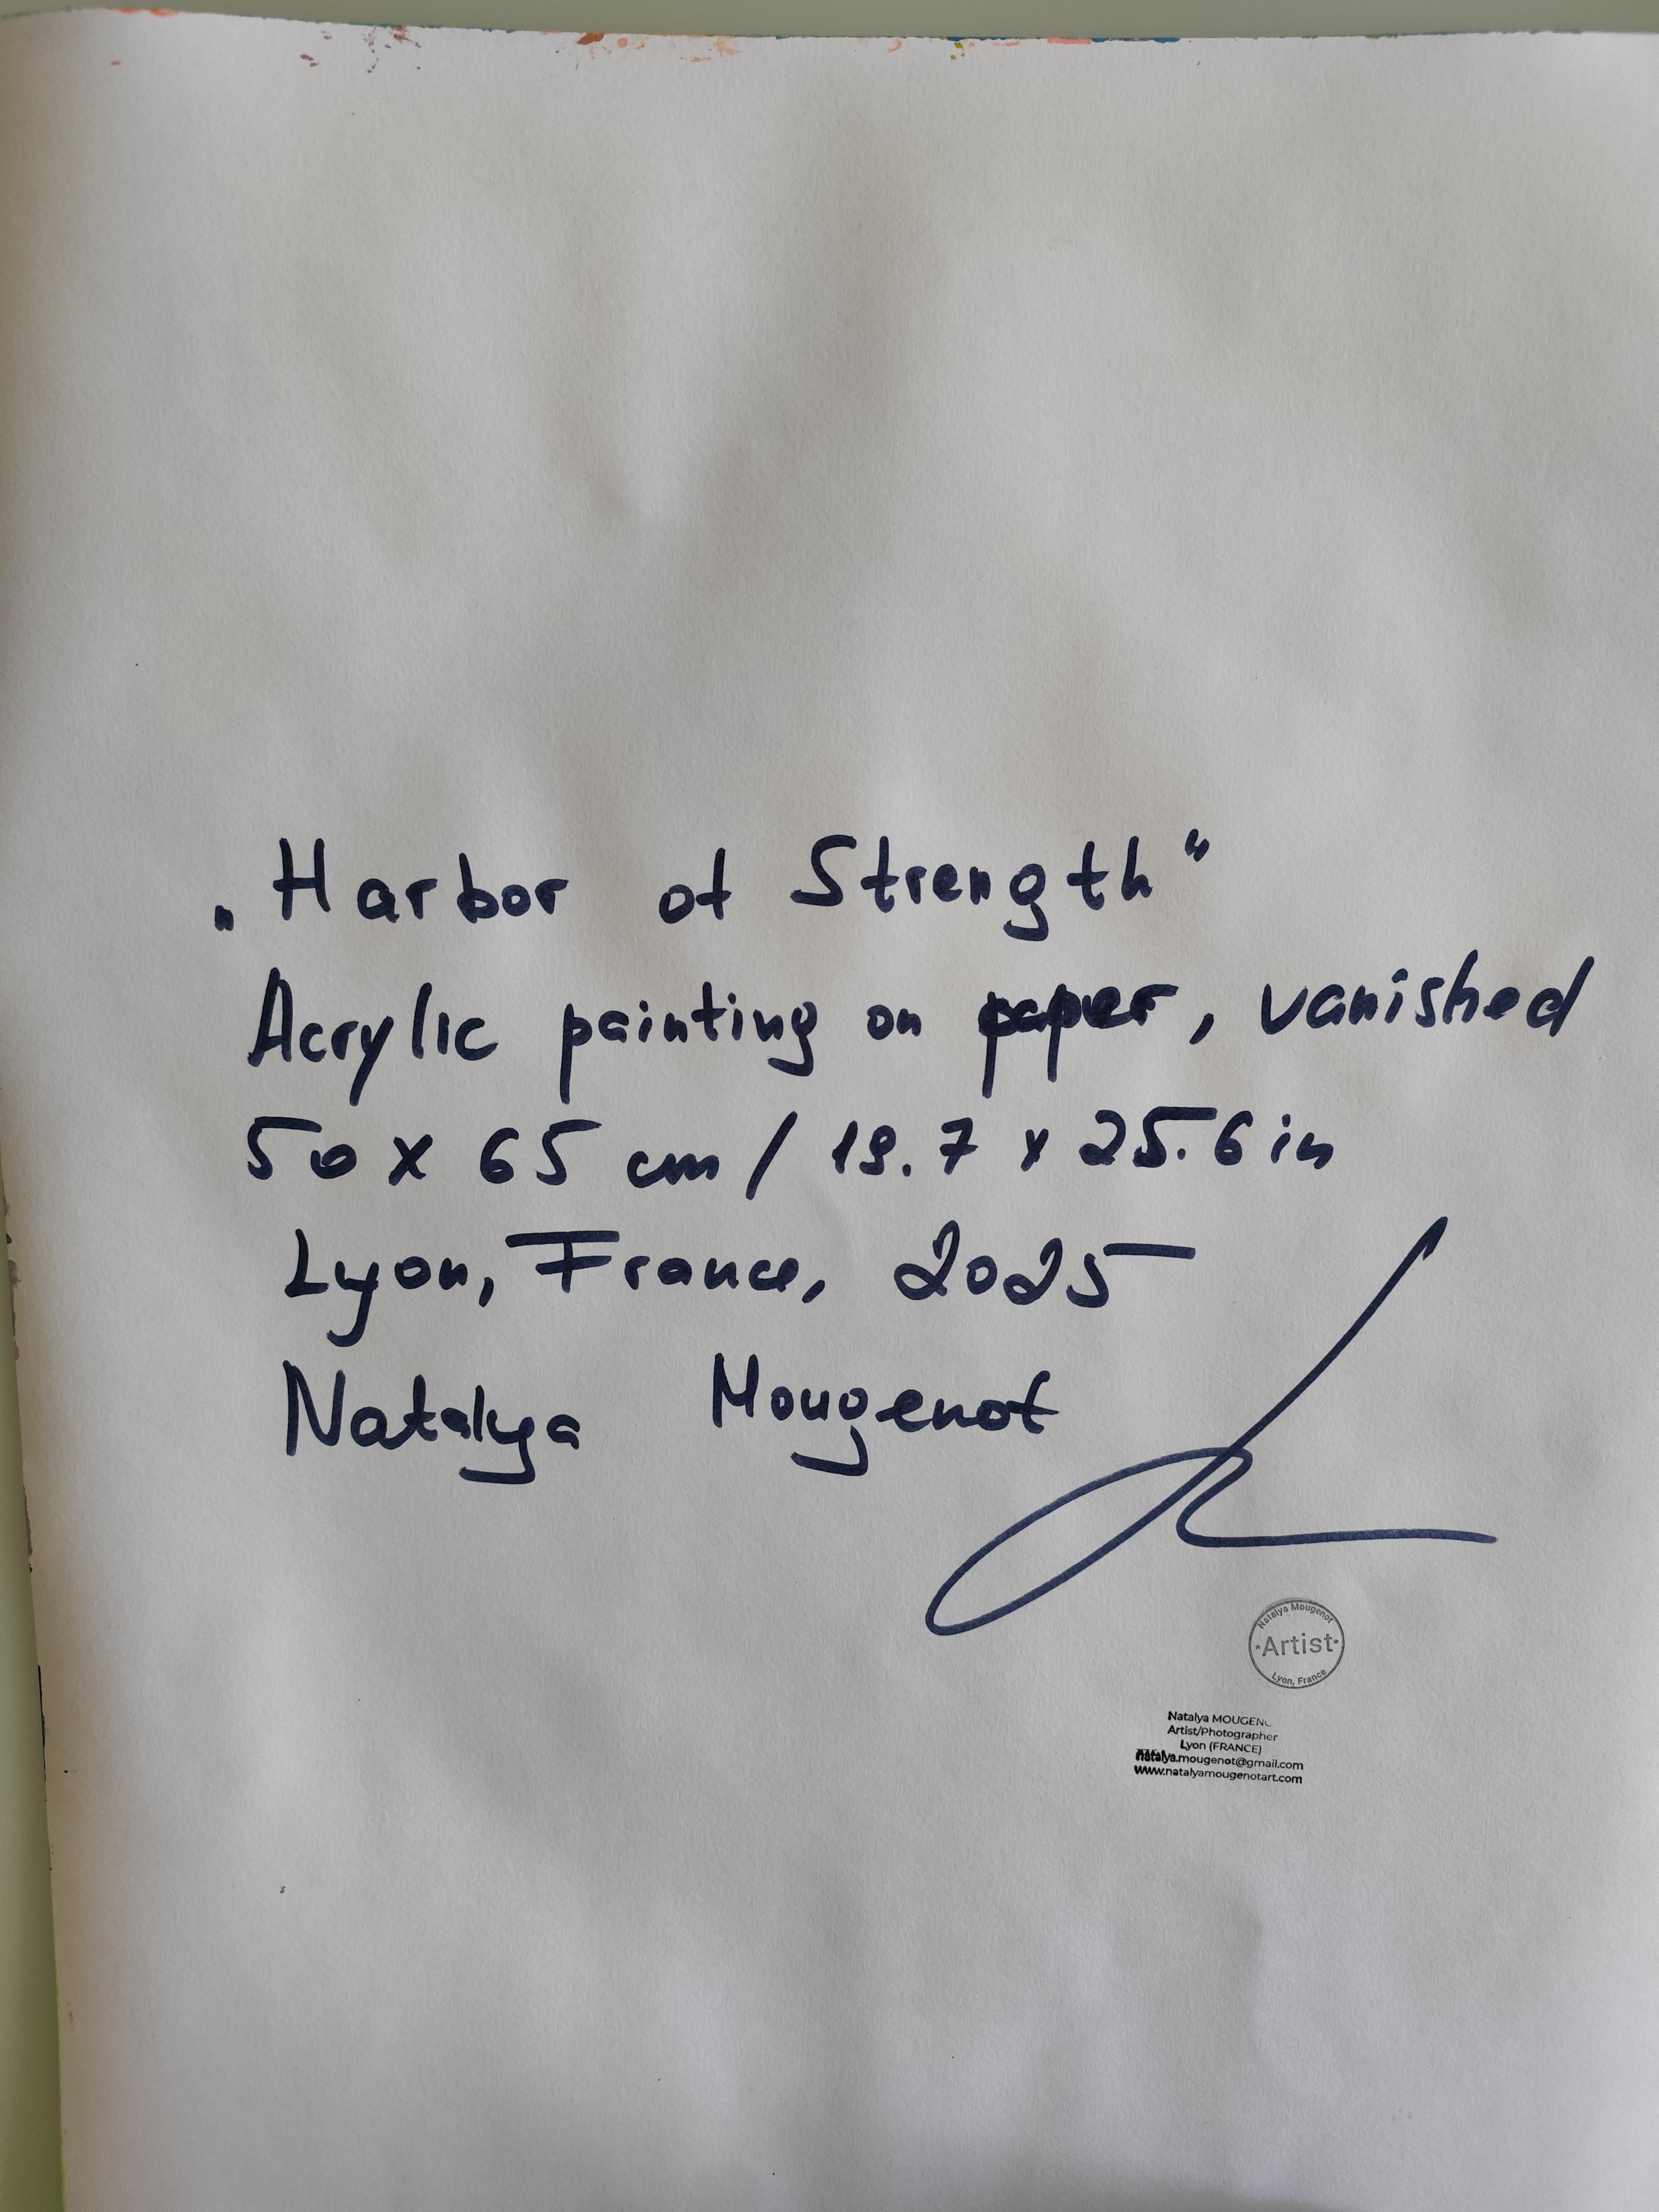 „Harbor of Strength“
Acrylic painting on paper, vanished
50 x 65 cm / 19.7 x 25.6 in
Lyon, France, 2025
Natalya Mougenot
Natalya Mougenot
Artist
Lyon, France
Natalya MOUGENO
Artist/Photographer
Lyon (FRANCE)
natalya.mougenot@gmail.com
www.natalyamougenotart.com